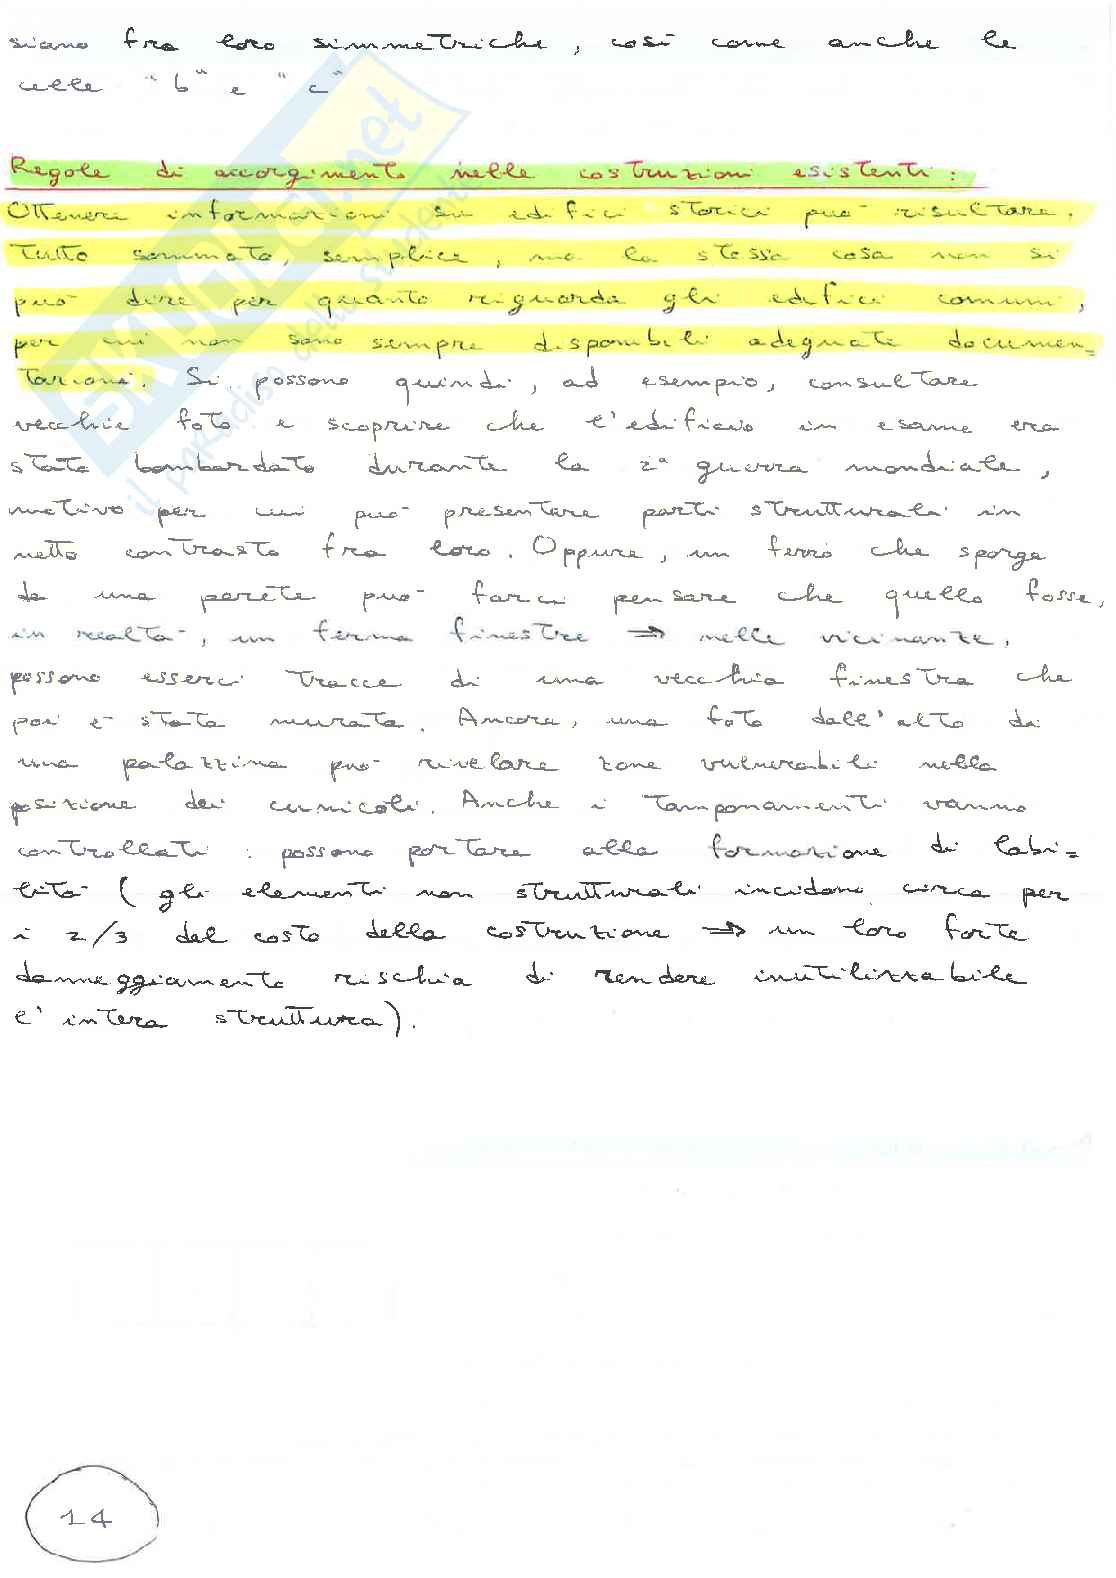 siano fra loro simmetriche, così come anche le
celle "b" e "c"
Regole di accorgimento nelle costruzioni esistenti:
Ottenere informazioni su edifici storici può risultare,
tutto sommato, semplice, ma la stessa cosa non si
può dire per quanto riguarda gli edifici comuni,
per cui non sono sempre disponibili adeguate documen=
tazioni. Si possono quindi, ad esempio, consultare
vecchie foto e scoprire che l'edificio in esame era
stato bombardato durante la 2ª guerra mondiale,
motivo per cui può presentare parti strutturali in
netto contrasto fra loro. Oppure, un ferro che sporge
da una parete può farci pensare che quello fosse,
in realtà, un ferma finestre ⇒ nelle vicinanze,
possono esserci tracce di una vecchia finestra che
poi è stata murata. Ancora, una foto dall'alto di
una palazzina può rivelare zone vulnerabili nella
posizione dei cunicoli. Anche i tamponamenti vanno
controllati: possono portare alla formazione di labi=
lità (gli elementi non strutturali incidono circa per
i 2/3 del costo della costruzione ⇒ un loro forte
danneggiamento rischia di rendere inutilizzabile
l'intera struttura).
14
SKUOLA.net
il paradiso dello studente